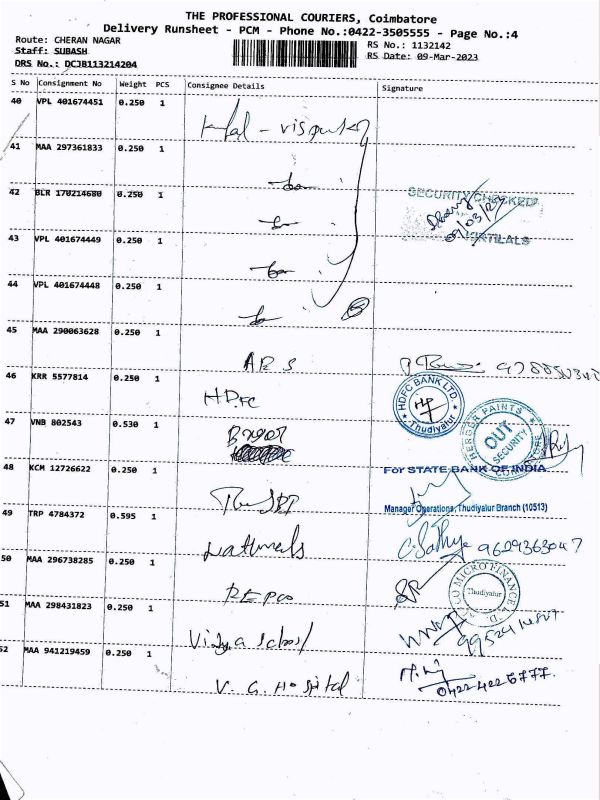 THE PROFESSIONAL COURIERS, Coimbatore
Delivery Runsheet - PCM - Phone No.:0422-3505555 - Page No.:4
Route: CHERAN NAGAR
Staff: SUBASH
DRS No.: DCJB113214204
RS No.: 1132142
RS Date: 09-Mar-2023
S No Consignment No Weight PCS Consignee Details Signature
40 VPL 401674451 0.250 1
41 MAA 297361833 0.250 1
42 BLR 170214680 0.250 1
SECURITY CHECKED
KIRTILALS
43 VPL 401674449 0.250 1
44 VPL 401674448 0.250 1
45 MAA 290063628 0.250 1
46 KRR 5577814 0.250 1 HDFC
HDFC BANK LTD. Thudiyalur
47 VNB 802543 0.530 1
BERGER PAINTS OUT SECURITY
48 KCM 12726622 0.250 1
For STATE BANK OF INDIA
Manager Operations, Thudiyalur Branch (10513)
49 TRP 4784372 0.595 1 Naturals
C. Sathya 9629363047
50 MAA 296738285 0.250 1 REPCO
MICRO FINANCE Thudiyalur
51 MAA 298431823 0.250 1 Vidya School
52 MAA 941219459 0.250 1 V. G. Hospital
0422 4226777.